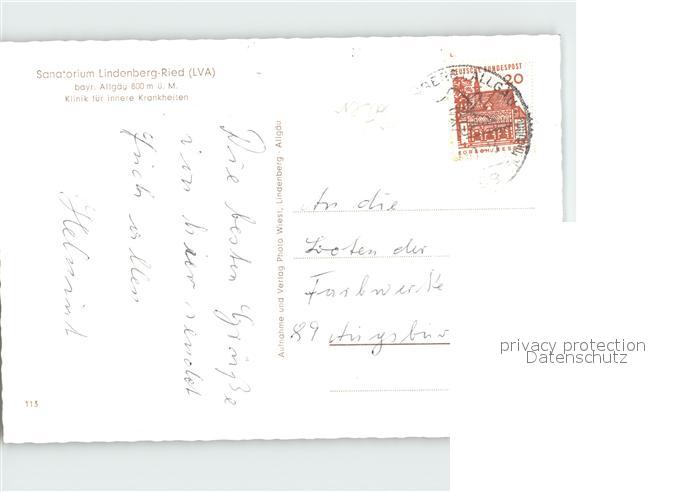 Sanatorium Lindenberg-Ried (LVA)
bayr. Allgäu 800 m ü. M.
Klinik für innere Krankheiten
Die besten Grüße
von hier sendet
Euch allen
Helmint
Aufnahme und Verlag Photo Wiesl, Lindenberg - Allgäu
113
DEUTSCHE BUNDESPOST
20
ALLGÄU
An die
Boten der
Farbwerke
89 Augsbur
privacy protection
Datenschutz